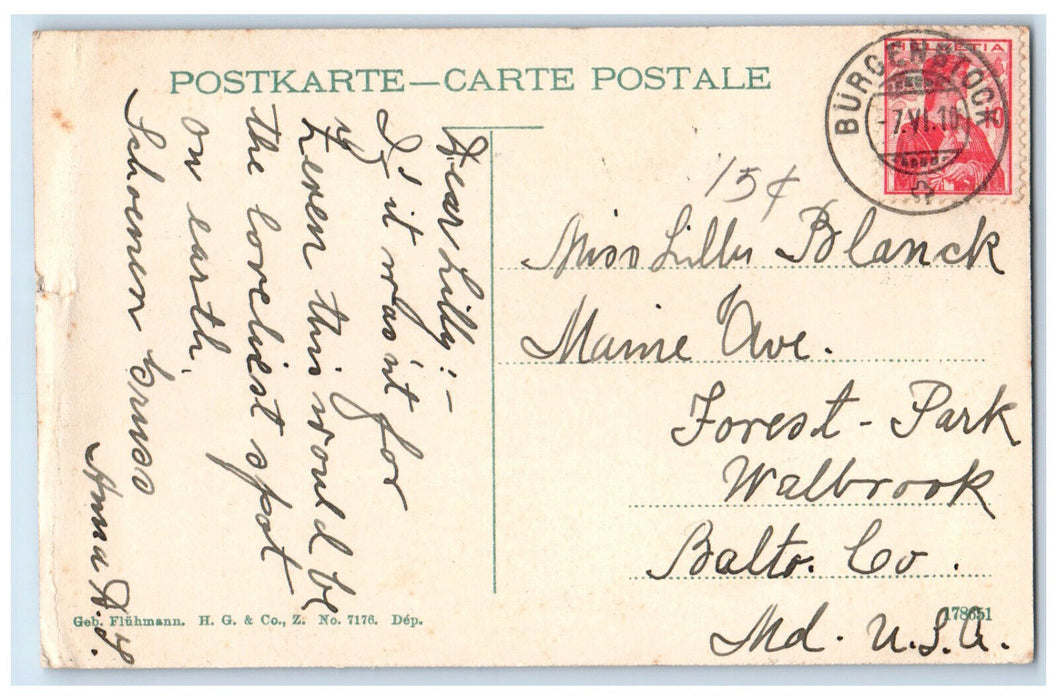 POSTKARTE—CARTE POSTALE
HELVETIA
BÜRGENSTOCK
-7.VI.10
15¢
Miss Lilly Blanck
Maine Ave.
Forest-Park
Walbrook
Balto. Co.
Md. U.S.A.
Dear Lilly:-
If it was'nt for
Zeven this would be
the loveliest spot
on earth.
Schoenen Gruss
Anna
Geb. Flühmann. H. G. & Co., Z. No. 7176. Dép.
178651